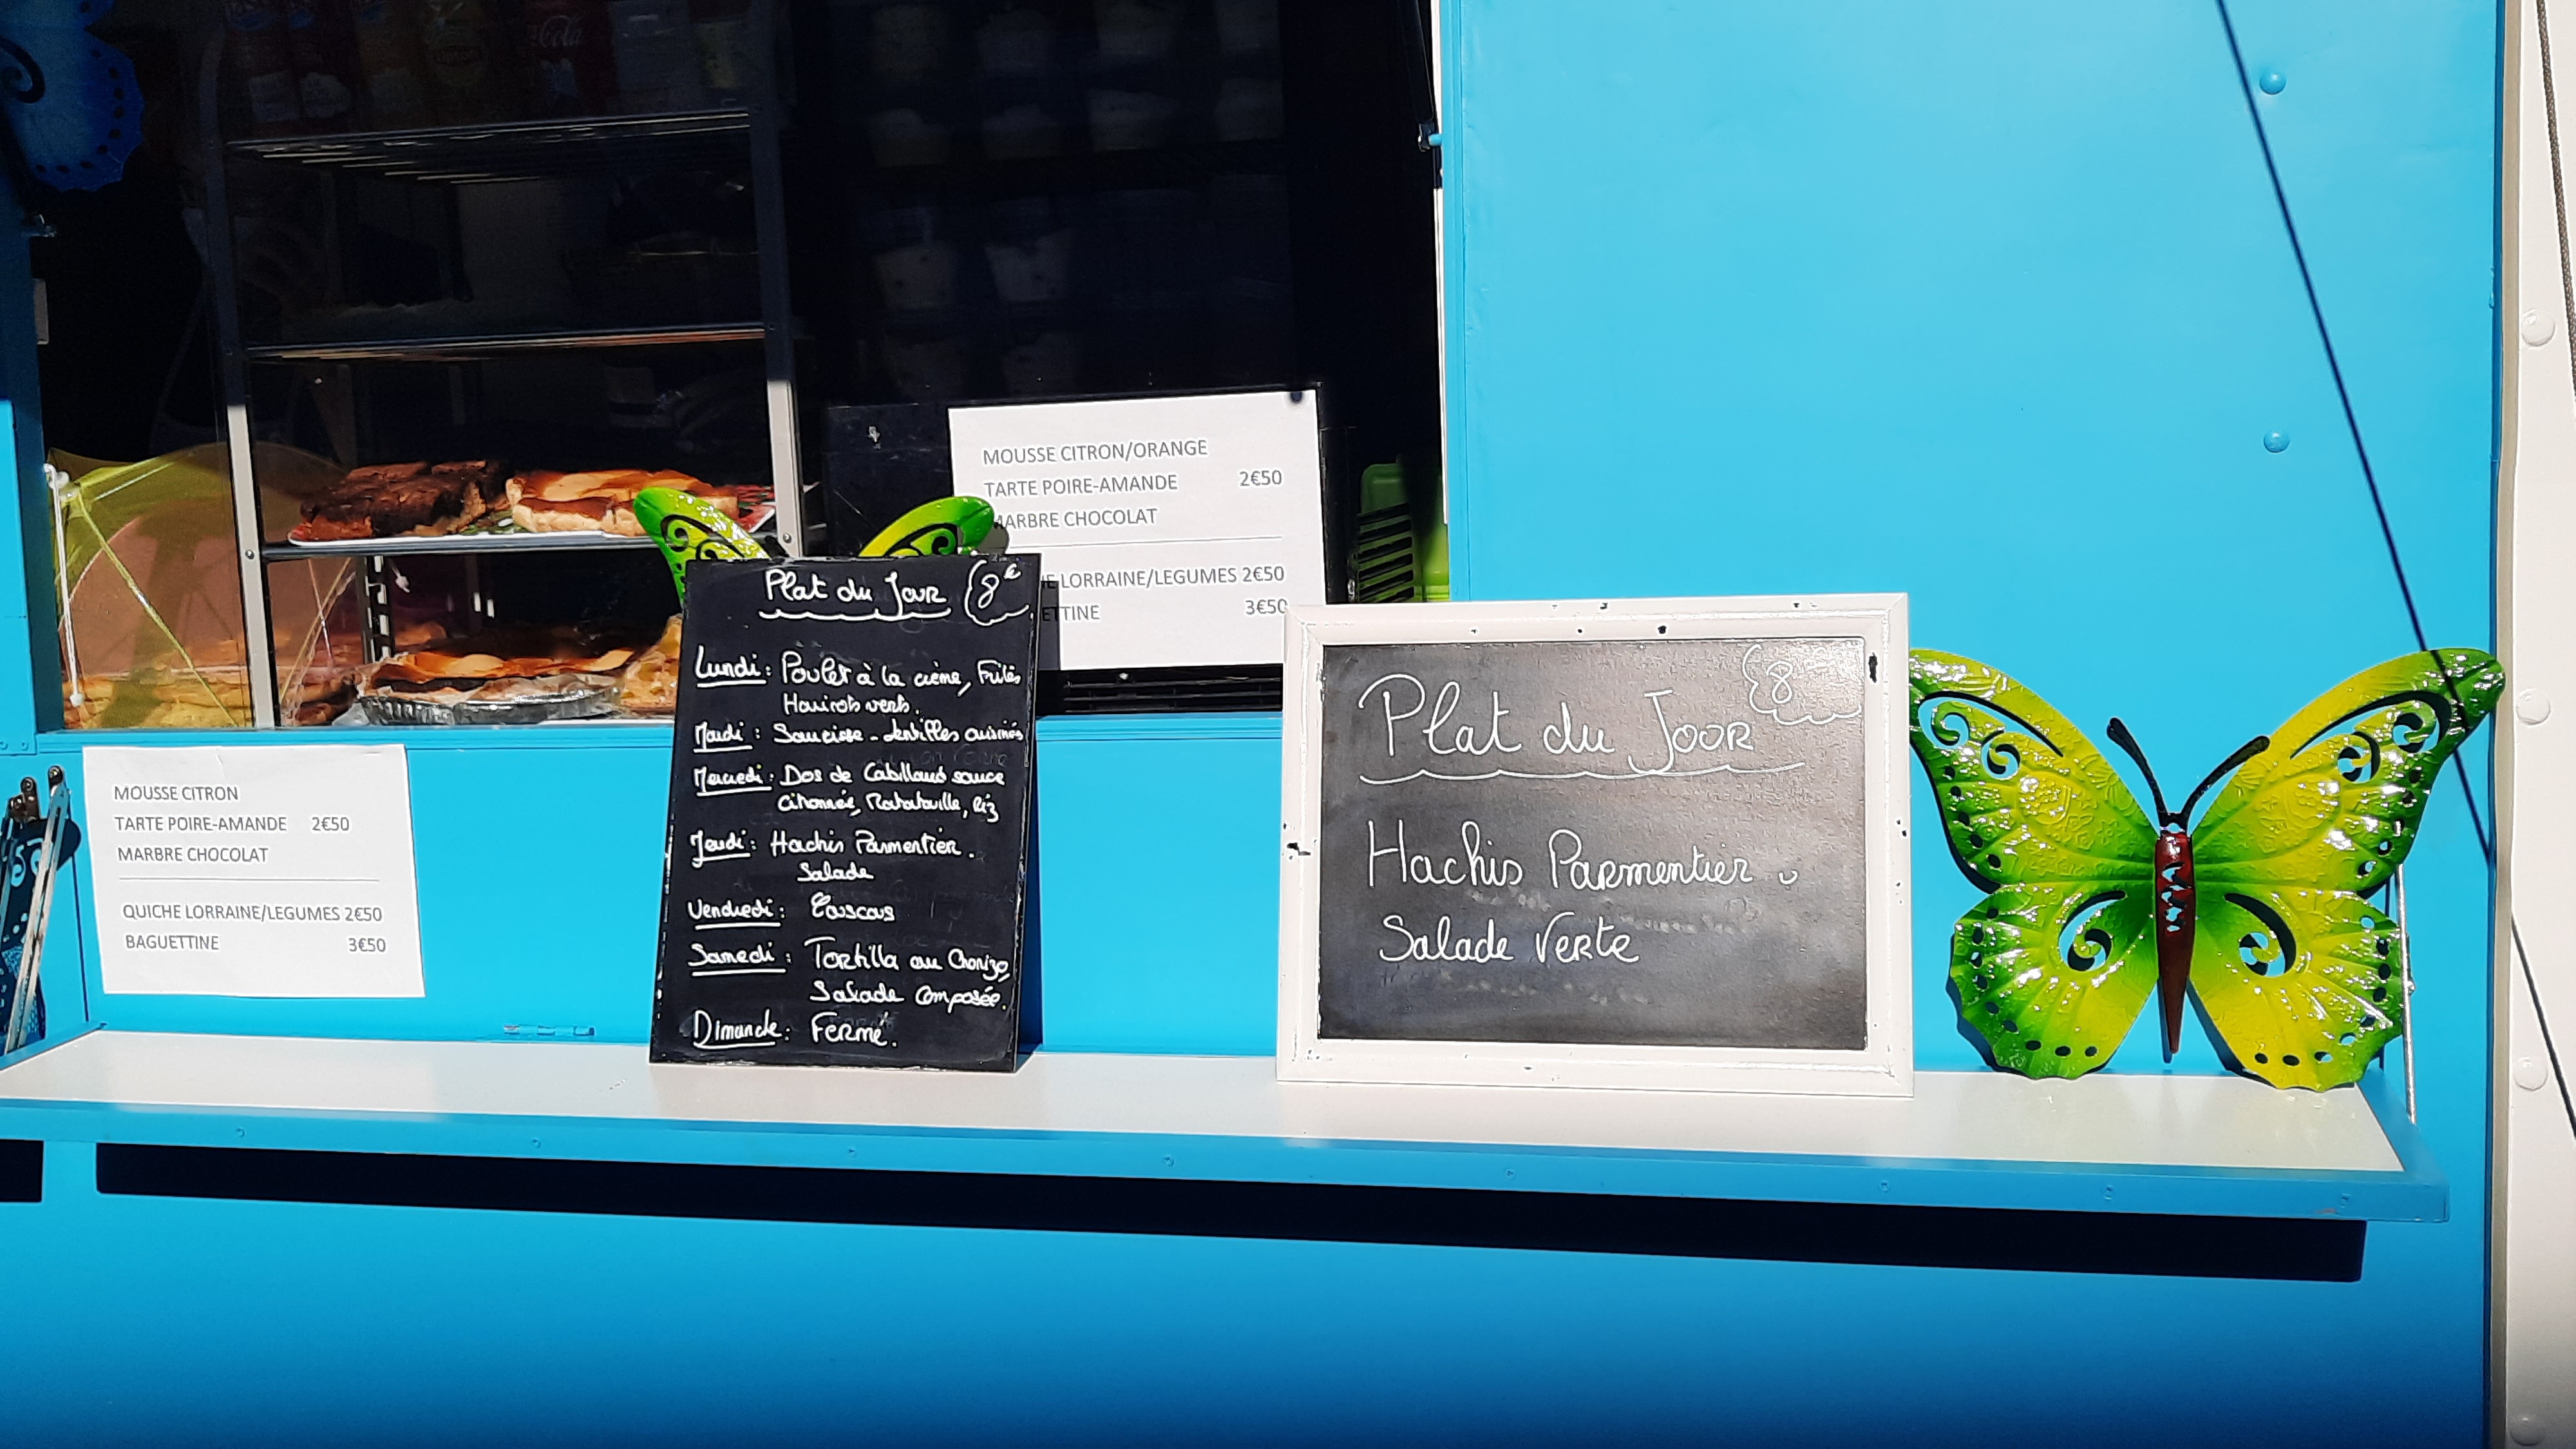 Cola
MOUSSE CITRON/ORANGE
TARTE POIRE-AMANDE 2€50
MARBRE CHOCOLAT
LORRAINE/LEGUMES 2€50
3€50
Plat du Jour 8€
Lundi: Poulet à la crème, Frites
Haricots verts.
Mardi: Saucisse - lentilles cuisinées
Mercredi: Dos de Cabillaud sauce
citronnée, Ratatouille, Riz
Jeudi: Hachis Parmentier.
Salade
Vendredi: Couscous
Samedi: Tortilla au Chorizo,
Salade composée.
Dimanche: Fermé.
Plat du Jour 8
Hachis Parmentier
Salade Verte
MOUSSE CITRON
TARTE POIRE-AMANDE 2€50
MARBRE CHOCOLAT
QUICHE LORRAINE/LEGUMES 2€50
BAGUETTINE 3€50